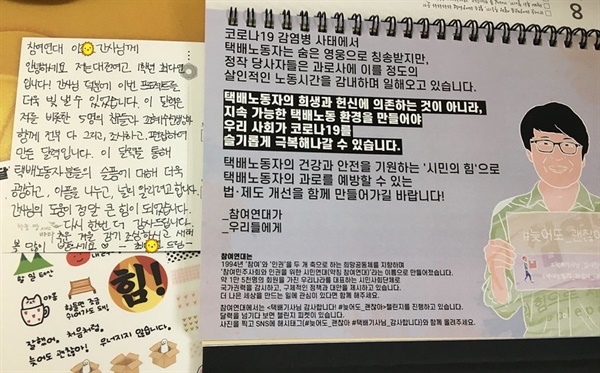 참여연대 이 간사님께
안녕하세요 저는 대전여고 1학년 최다
입니다! 간사님 덕분에 이번 프로젝트를
더욱 빛낼 수 있었습니다. 이 달력은
저를 비롯한 5명의 학생들과
함께 진부 다 그리고, 조사하고, 편집하여
만든 달력입니다. 이 달력을 통해
택배노동자분들의 슬픔에 대해 더욱
공감하고, 아픔을 나누고, 널리 알리려고 합니다.
간사님의 도움이 정말 큰 힘이 되었습니다.
다시 한번 더 감사드립니다.
추운 겨울 감기 조심하시고 새해
복 많이
힘들면 조금
쉬어가도 돼!
힘!
잘했어.
처음처럼.
늦어도 괜찮아!
무너지지 않습니다.
8
코로나19 감염병 사태에서
택배노동자는 숨은 영웅으로 칭송받지만,
정작 당사자들은 과로사에 이를 정도의
살인적인 노동시간을 감내하며 일해오고 있습니다.
택배노동자의 희생과 헌신에 의존하는 것이 아니라,
지속 가능한 택배노동 환경을 만들어야
우리 사회가 코로나19를
슬기롭게 극복해나갈 수 있습니다.
택배노동자의 건강과 안전을 기원하는 '시민의 힘'으로
택배노동자의 과로를 예방할 수 있는
법·제도 개선을 함께 만들어가길 바랍니다!
_참여연대가
_우리들에게
참여연대는
1994년 '참여'와 '인권'을 두 개 축으로 하는 희망공동체를 지향하며
'참여민주사회와 인권을 위한 시민연대(약칭 참여연대)'라는 이름으로 만들어졌습니다.
약 1만 5천명의 회원을 가진 우리나라를 대표하는 시민사회단체로
국가권력을 감시하고, 구체적인 정책과 대안을 제시하고 있습니다.
더 나은 세상을 만드는 일에 관심이 있다면 함께 해주세요.
참여연대에서는 <택배기사님 감사합니다! #늦어도 괜찮아>챌린지를 진행하고 있습니다.
달력을 넘기다 보면 챌린지 피켓이 있습니다.
사진을 찍고 SNS에 해시태그(#늦어도_괜찮아 #택배기사님_감사합니다)와 함께 올려주세요.
#늦어도 괜찮아